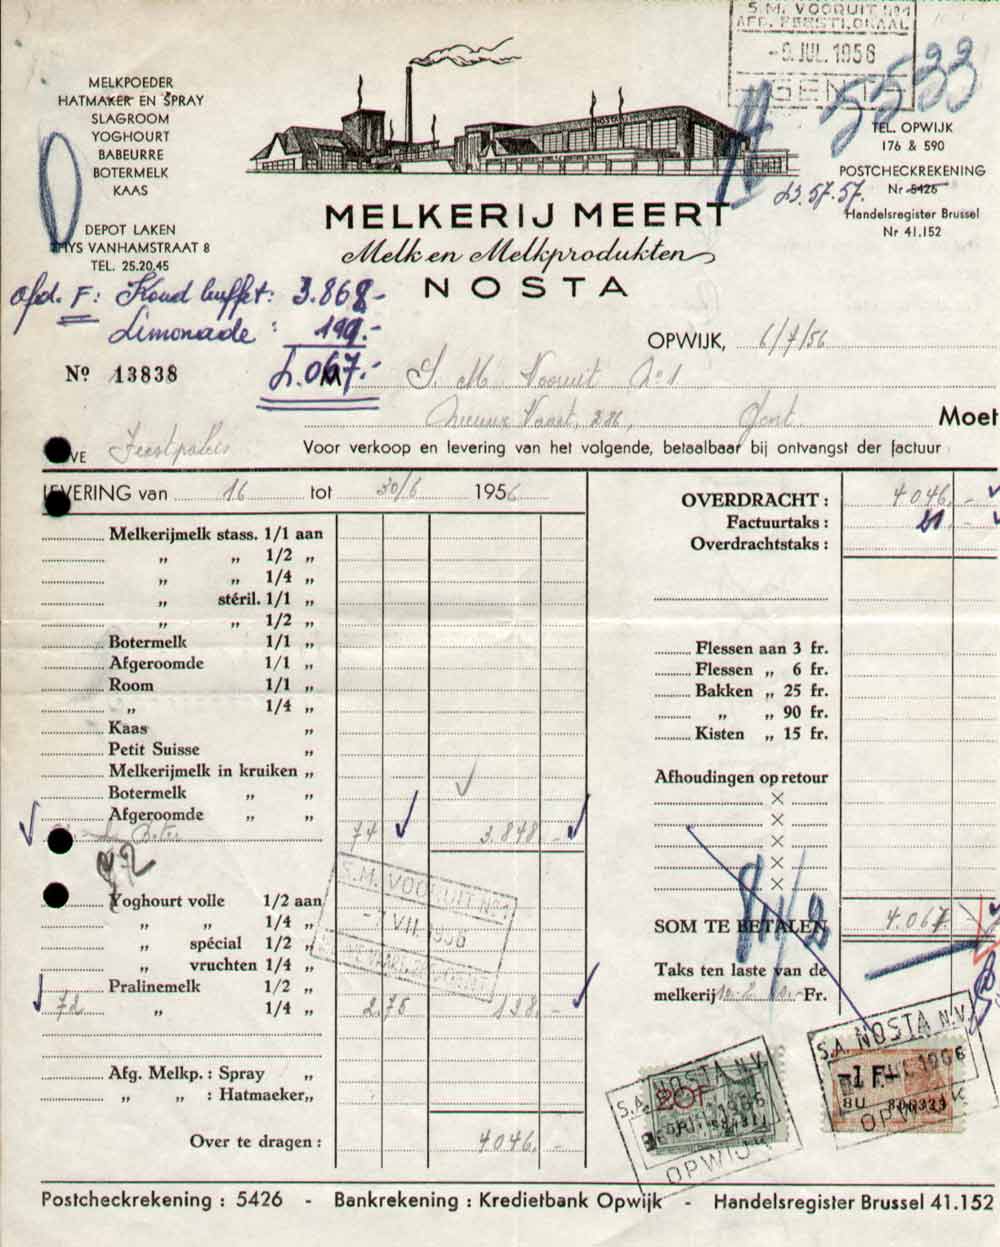 S.M. VOORUIT No1
AFD. FEESTLOKAAL
-9 JUL. 1956
GENT
5533
MELKPOEDER
HATMAKER EN SPRAY
SLAGROOM
YOGHOURT
BABEURRE
BOTERMELK
KAAS
DEPOT LAKEN
THYS VANHAMSTRAAT 8
TEL. 25.20.45
TEL. OPWIJK
176 & 590
POSTCHECKREKENING
Nr 5426
23.57.57.
Handelsregister Brussel
Nr 41.152
MELKERIJ MEERT
Melk en Melkprodukten
NOSTA
Afd. F: Koud buffet: 3.868-
Limonade : 199.-
4.067.-
OPWIJK, 6/7/56
No 13838
M S. M. Vooruit No 1
Nieuwe Vaart, 286, Gent. Moet
Feestpaleis
Voor verkoop en levering van het volgende, betaalbaar bij ontvangst der factuur
LEVERING van 16 tot 30/6 1956
Melkerijmelk stass. 1/1 aan
„ „ 1/2 „
„ „ 1/4 „
„ stéril. 1/1 „
„ „ 1/2 „
Botermelk 1/1 „
Afgeroomde 1/1 „
Room 1/1 „
„ 1/4 „
Kaas „
Petit Suisse „
Melkerijmelk in kruiken „
Botermelk „ „
Afgeroomde „ „
Boter 74 3.848 -
S.M. VOORUIT No1
-7 VII 1956
Yoghourt volle 1/2 aan
„ „ 1/4 „
„ spécial 1/2 „
„ vruchten 1/4 „
Pralinemelk 1/2 „
72 „ 1/4 „ 2.75 198.-
Afg. Melkp. : Spray „
„ „ : Hatmaeker „
Over te dragen : 4046.-
OVERDRACHT : 4046.-
Factuurtaks : 21.-
Overdrachtstaks :
Flessen aan 3 fr.
Flessen „ 6 fr.
Bakken „ 25 fr.
„ „ 90 fr.
Kisten „ 15 fr.
Afhoudingen op retour
×
×
×
×
×
SOM TE BETALEN 4.067
Taks ten laste van de
melkerij Fr.
S.A. NOSTA N.V.
20F
OPWIJK
S.A. NOSTA N.V.
-1F-
8U 800333
OPWIJK
Postcheckrekening : 5426 - Bankrekening : Kredietbank Opwijk - Handelsregister Brussel 41.152